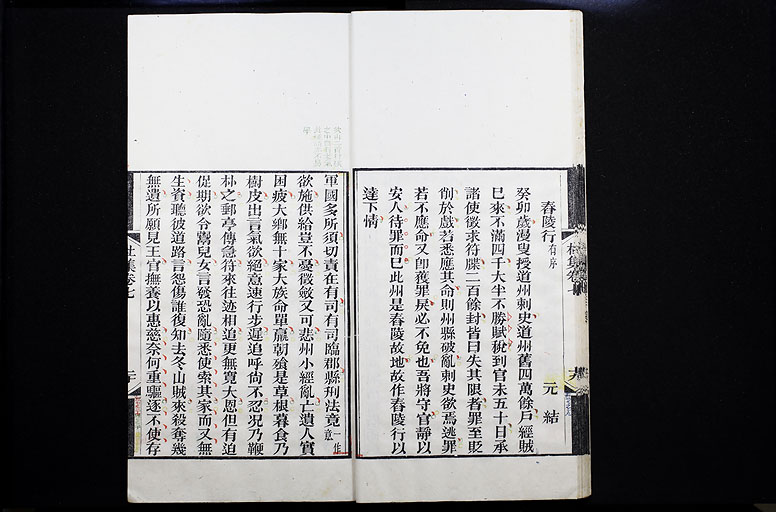 舂陵行有序
元結
癸卯歲漫叟授道州刺史道州舊四萬餘戶經賊
已來不滿四千大半不勝賦稅到官未五十日承
諸使徵求符牒二百餘封皆曰失其限者罪至貶
削於戲若悉應其命則州縣破亂刺史欲焉逃罪
若不應命又卽獲罪戾必不免也吾將守官靜以
安人待罪而已此州是舂陵故地故作舂陵行以
達下情
軍國多所須切責在有司有司臨郡縣刑法竟一作意
欲施供給豈不憂徵斂又可悲州小經亂亡遺人實
困疲大鄉無十家大族命單羸朝飧是草根暮食乃
樹皮出言氣欲絕意速行步遲追呼尚不忍況乃鞭
朴之郵亭傳急符來往迹相追更無寬大恩但有迫
促期欲令鬻兒女言發恐亂隨悉使索其家而又無
生資聽彼道路言怨傷誰復知去冬山賊來殺奪幾
無遺所願見王官撫養以惠慈奈何重驅逐不使存
杜集卷七